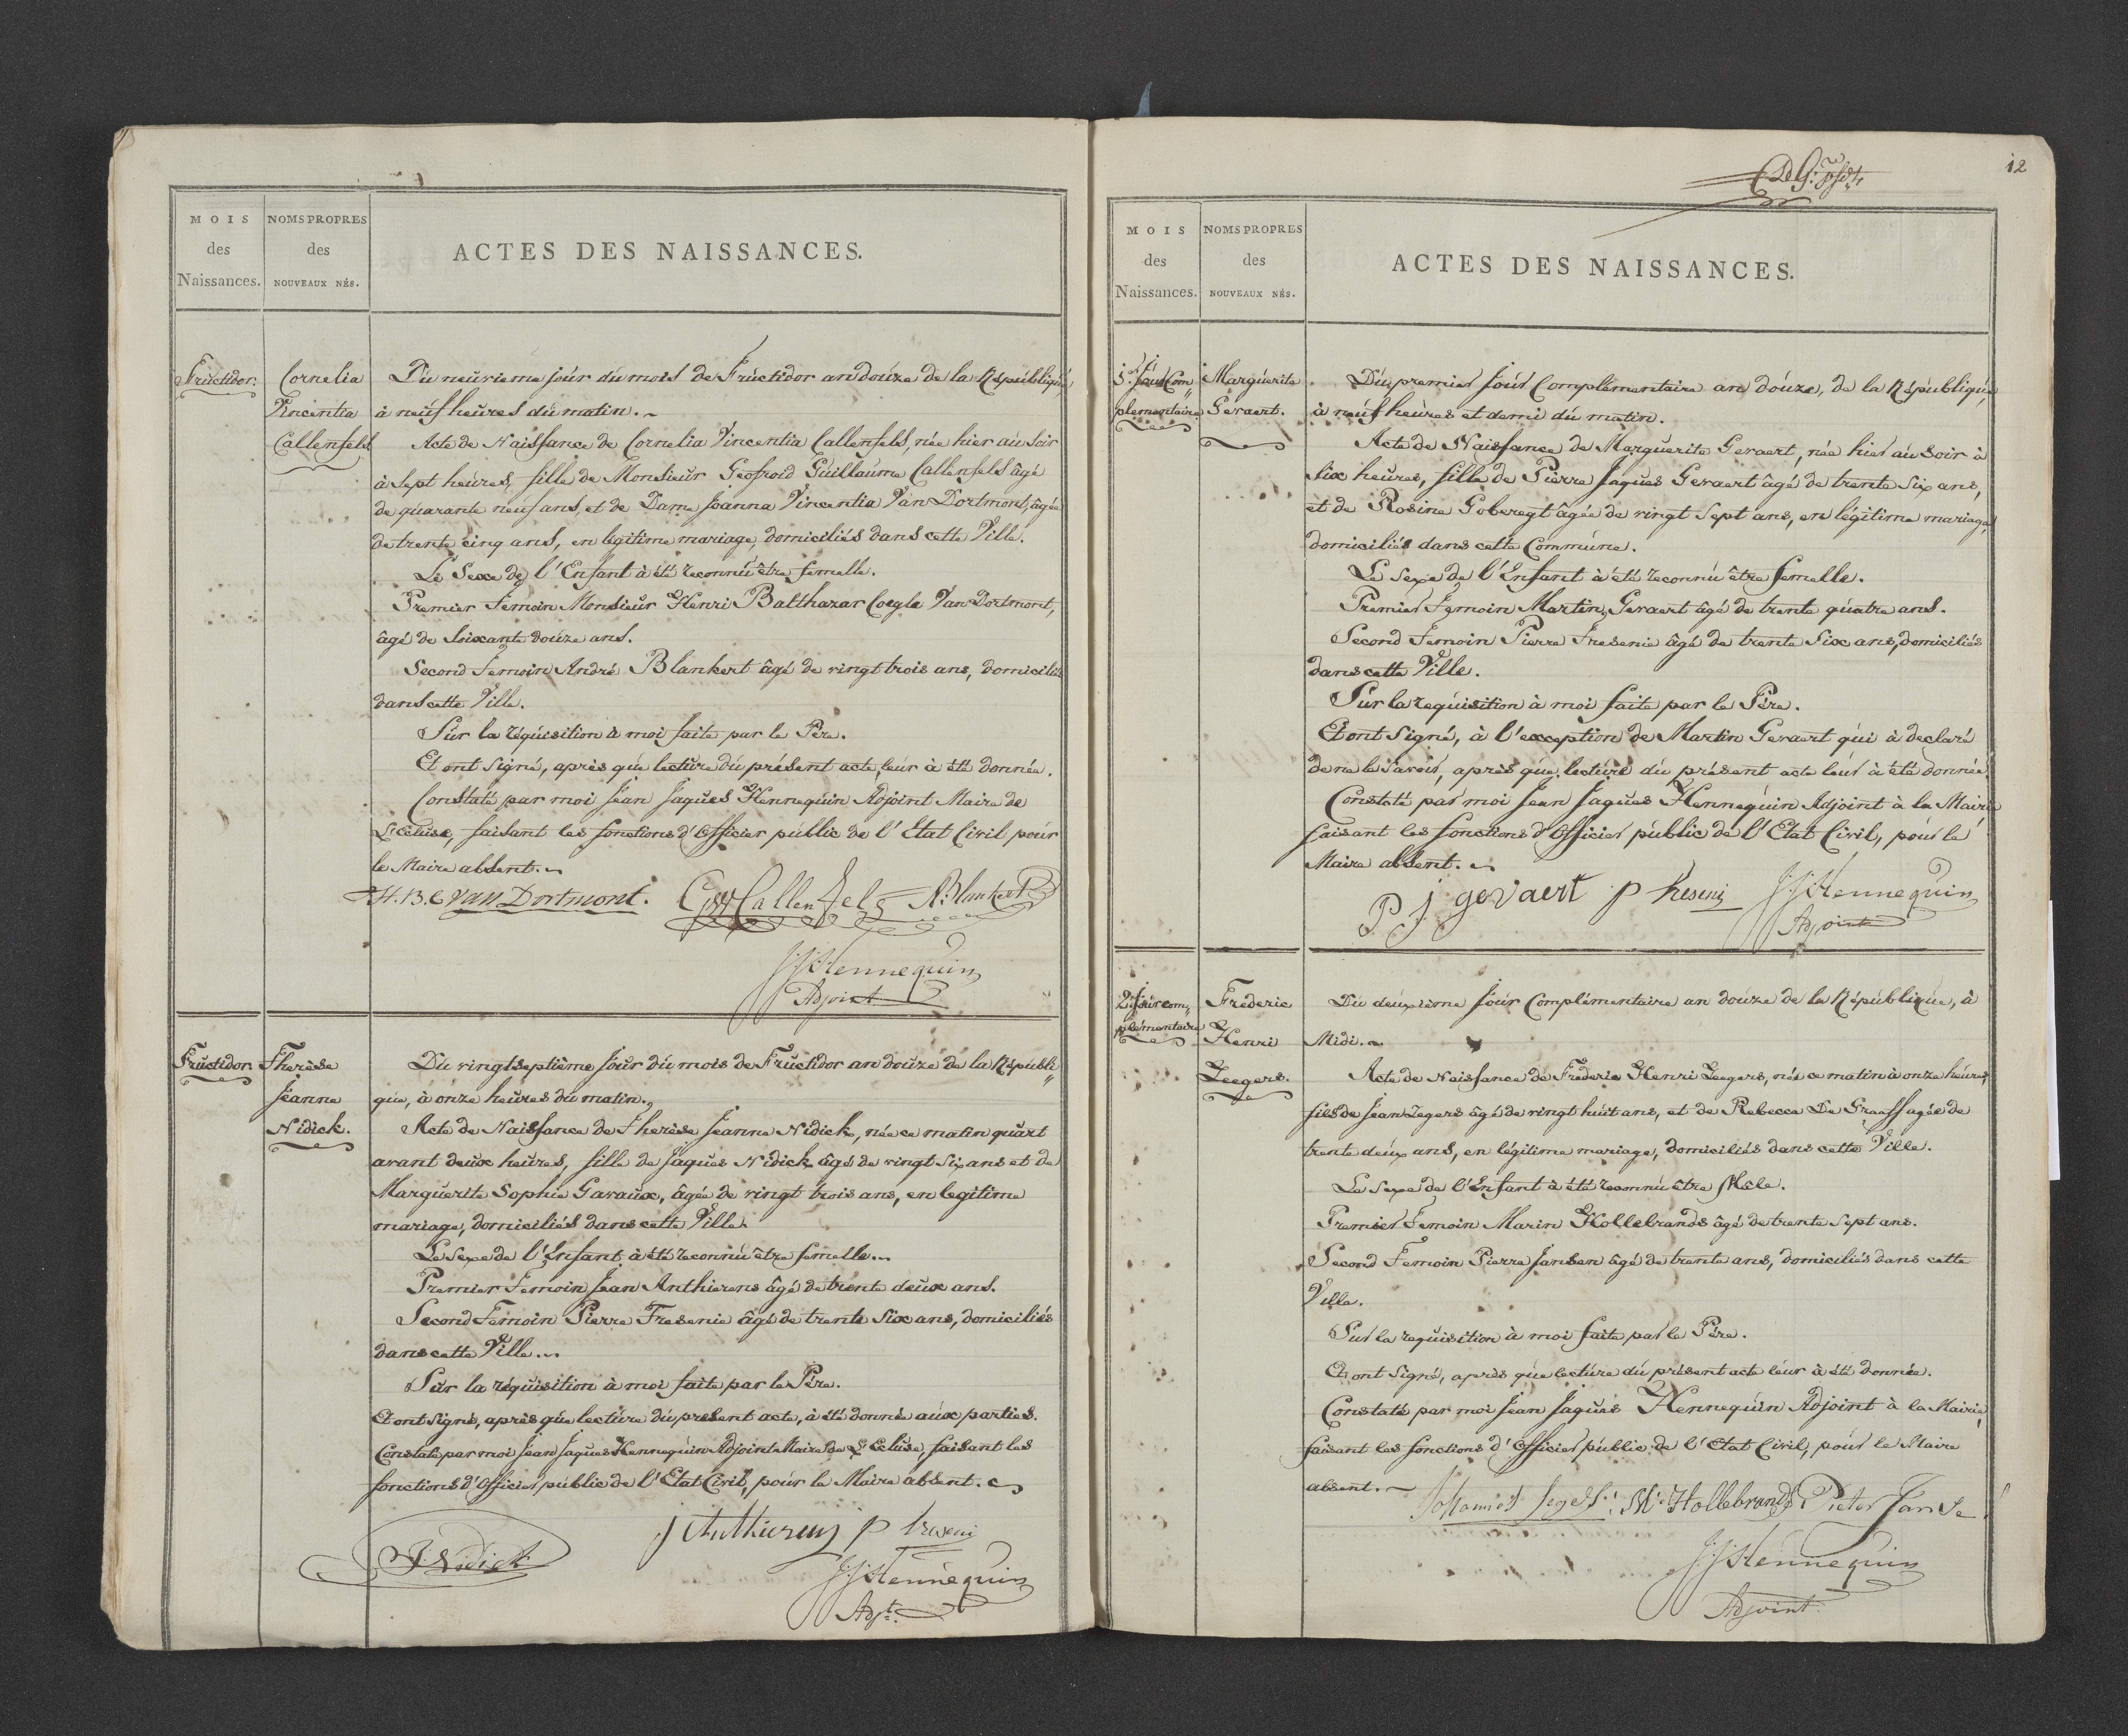 MOIS
des
Naissances.
NOMS PROPRES
des
NOUVEAUX NÉS.
ACTES DES NAISSANCES.
Fructidor.
Cornelia
Vincentia
Callenfels
Du neuvieme jour du mois de Fructidor an douze de la République,
à neuf heures du matin.
Acte de Naissance de Cornelia Vincentia Callenfels, née hier au Soir
à Sept heures, fille de Monsieur Geofroid Guillaume Callenfels âgé
de quarante neuf ans, et de Dame Joanna Vincentia Van Dortmont, âgée
de trente cinq ans, en legitime mariage, domiciliés dans cette Ville.
Le Sexe de l'Enfant à été reconnu être femelle.
Premier Temoin Monsieur Henri Balthazar Coegle Van Dortmont,
âgé de Soixante douze ans.
Second Temoin André Blankert âgé de vingt trois ans, domiciliés
dans cette Ville.
Sur la réquisition à moi faite par le Père.
Et ont Signé, après que lecture du présent acte leur à été donnée.
Constaté par moi Jean Jaques Hennequin Adjoint Maire de
L'Ecluse, faisant les fonctions d'Officier public de l'Etat Civil pour
le Maire absent.
H. B. C van Dortmont. GW Callenfels A. Blankert
JJ Hennequin
Adjoint
Fructidor
Therèse
Jeanne
Nidick.
Du vingtseptième jour du mois de Fructidor an douze de la Républi
que, à onze heures du matin.
Acte de Naissance de Therèse Jeanne Nidick, née ce matin quart
avant deux heures, fille de Jaques Nidick âgé de vingt Six ans et de
Marguerite Sophie Gavaux, âgée de vingt trois ans, en legitime
mariage, domiciliés dans cette Ville.
Le Sexe de l'Enfant à été reconnu être femelle.
Premier Temoin Jean Anthierens âgé de trente deux ans.
Second Temoin Pierre Fresenie âgé de trente Six ans, domiciliés
dans cette Ville.
Sur la réquisition à moi faite par le Père.
Et ont Signé, après que lecture du present acte, à été donnée aux parties.
Constaté par moi Jean Jaques Hennequin Adjoint Maire de L'Ecluse, faisant les
fonctions d'Officier public de l'Etat Civil, pour le Maire absent.
J. Nidick
j Anthierens p freseni
JJ Hennequin
Adjt.
12
MOIS
des
Naissances.
NOMS PROPRES
des
NOUVEAUX NÉS.
ACTES DES NAISSANCES.
1.er Jour Com
plementaire
Marguerite
Gevaert.
Du premier jour Complémentaire an douze, de la République,
à neuf heures et demi du matin.
Acte de Naissance de Marguerite Gevaert, née hier au Soir à
Six heures, fille de Pierre Jaques Gevaert âgé de trente Six ans,
et de Rosine Goberegt âgée de vingt Sept ans, en légitime mariage,
domiciliés dans cette Commune.
Le Sexe de l'Enfant à été reconnu être femelle.
Premier Temoin Martin Gevaert âgé de trente quatre ans.
Second Temoin Pierre Fresenie âgé de trente Six ans, domiciliés
dans cette Ville.
Sur la requisition à moi faite par le Père.
Et ont Signé, à l'exception de Martin Gevaert qui à declaré
de ne le savoir, après que lecture du présent acte leur à été donnée.
Constaté par moi Jean Jaques Hennequin Adjoint à la Mairie
faisant les fonctions d'Officier public de l'Etat Civil, pour le
Maire absent.
P. j gevaert p fresenij JJ Hennequin
Adjoint
2.e Jour com
plémentaire
Fréderic
Henri
Zeegers.
Du deuxieme Jour Complémentaire an douze de la République, à
Midi.
Acte de Naissance de Fréderic Henri Zeegers, né ce matin à onze heures,
fils de Jean Zegers âgé de vingt huit ans, et de Rebecca De Graaff agée de
trente deux ans, en légitime mariage, domiciliés dans cette Ville.
Le Sexe de l'Enfant à été reconnu être Mâle.
Premier Temoin Marin Hollebrands âgé de trente Sept ans.
Second Temoin Pierre Jansen âgé de trente ans, domiciliés dans cette
Ville.
Sur la requisition à moi faite par le Père.
Et ont Signé, après que lecture du présent acte leur à été donnée.
Constaté par moi Jean Jaques Hennequin Adjoint à la Mairie,
faisant les fonctions d'Officier public de l'Etat Civil, pour le Maire
absent.
Johannes Segers. M. Hollebrands Pieter Janse
JJ Hennequin
Adjoint